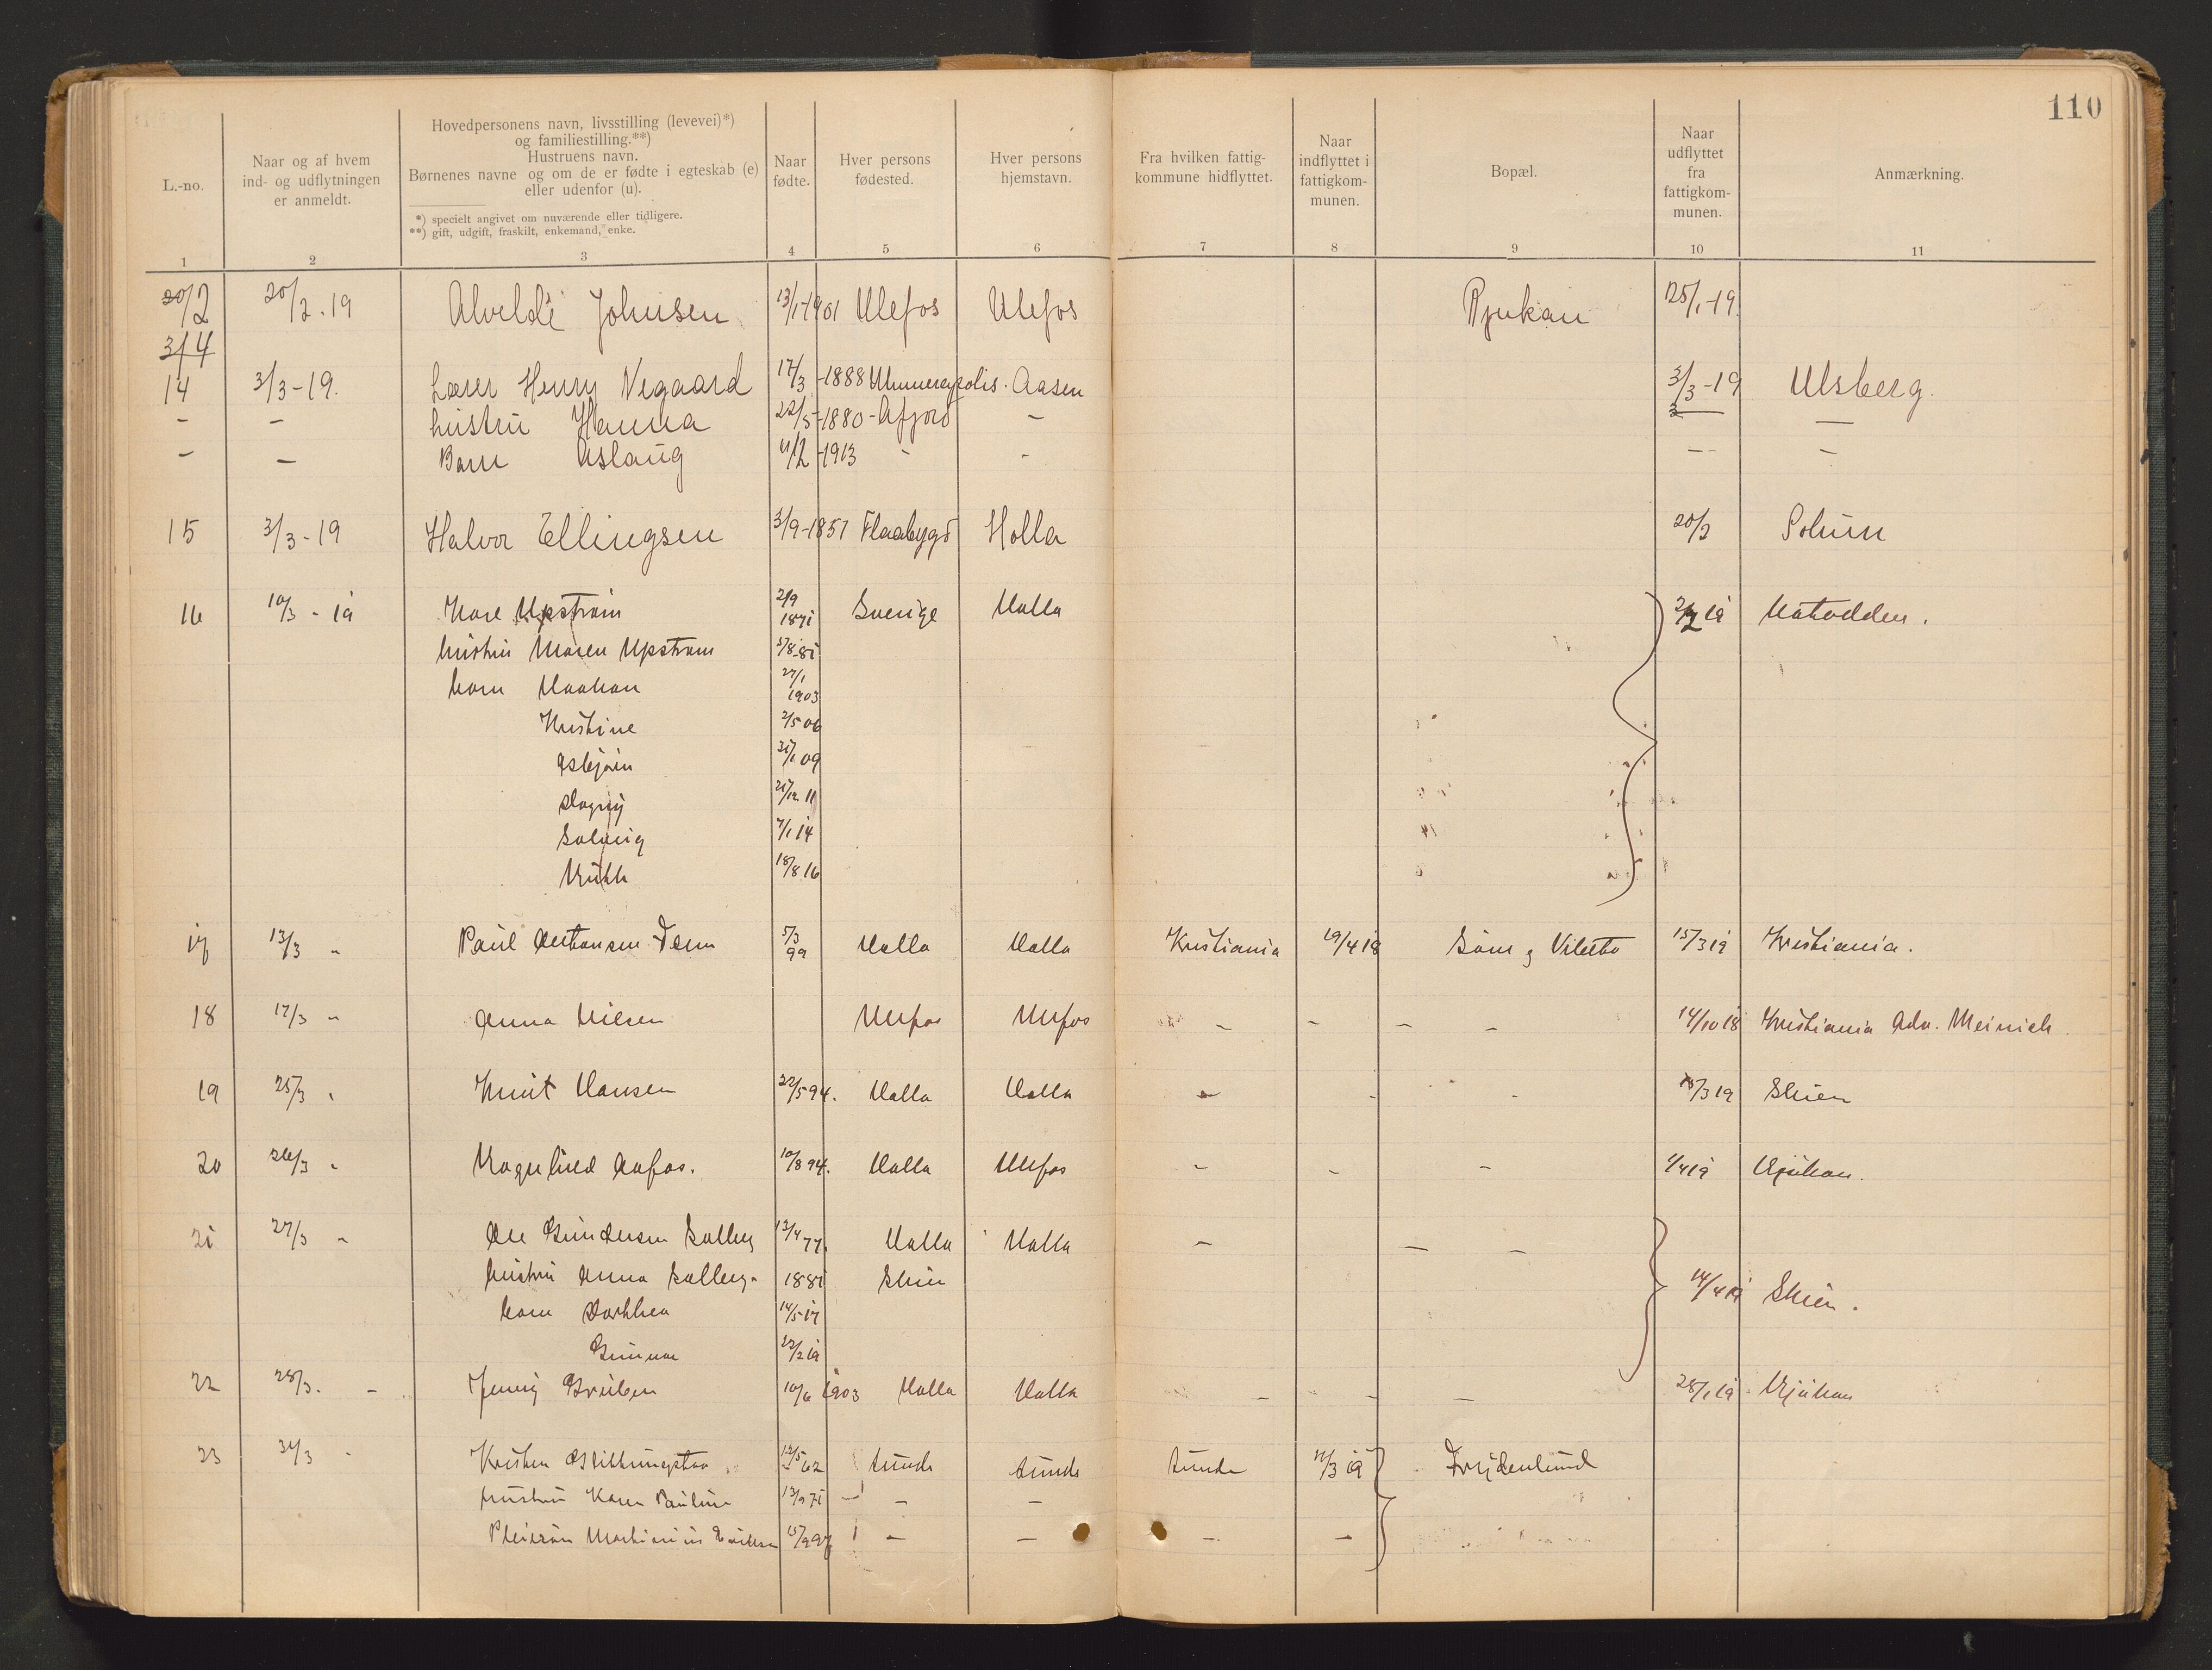 110
L.-no.
Naar og af hvem ind- og udflytningen er anmeldt.
Hovedpersonens navn, livsstilling (levevei)*) og familiestilling.**) Hustruens navn. Børnenes navne og om de er fødte i egteskab (e) eller udenfor (u).
*) specielt angivet om nuværende eller tidligere.
**) gift, udgift, fraskilt, enkemand, enke.
Naar fødte.
Hver persons fødested.
Hver persons hjemstavn.
Fra hvilken fattigkommune hidflyttet.
Naar indflyttet i fattigkommunen.
Bopæl.
Naar udflyttet fra fattigkommunen.
Anmærkning.
1 2 3 4 5 6 7 8 9 10 11
20/2 20/2.19 Johnsen 13/1-1901 Ulefos Ulefos Rjukan 25/1-19.
3/4
14 3/3-19. Lærer Henry Vegaard 17/3-1888 Aasen 3/3-19 Ulsberg.
- - hustru Hanna 22/5-1880- Afjord - —
- - Barn Aslaug 11/2-1913 - - - -
15 3/3-19 Halvor Ellingsen 3/9-1851 Flaabygd Holla 20/2 Solum
16 10/3-19 Upstrøm 2/9 Sverige Holla 19 Notodden.
hustru Maren Upstrøm 5/8-81
barn Haakon 27/1 1903
Kristine 2/5 06
Asbjørn 31/1 09
Dagny 11
Solveig 7/1 14
Ruth 18/8 16
17 13/3 " Paul 5/3 99 Holla Holla Kristiania 19/4 18 15/3 19 Kristiania.
18 17/3 " Anna Nilsen Ulefos Ulefos - - - - 14/10 18 Kristiania Adv. Meinich
19 25/3 " Knut Hansen 22/5 94. Holla Holla - - - /3 19 Skien
20 26/3 " Ragnhild Aafos. 10/8 94. Holla Ulefos - - - 1/4 19 Rjukan.
21 27/3 " Ole Gundersen Solberg 13/4 77. Holla Holla - - -
hustru Anna Solberg. 1881 Skien 14/4 19 Skien.
barn Dorthea 14/5 17
Gunnar 22/2 19
22 28/3. - Jenny Gruben 10/6 1903 Holla Holla - - - 28/1 19 Rjukan
23 31/3 " Kristen 12/5 62 Lunde Lunde Lunde /3 19 Frydenlund
hustru Karen Pauline 13/9 71 - - -
Pleiesøn Martinius 15/9 97 - - - -